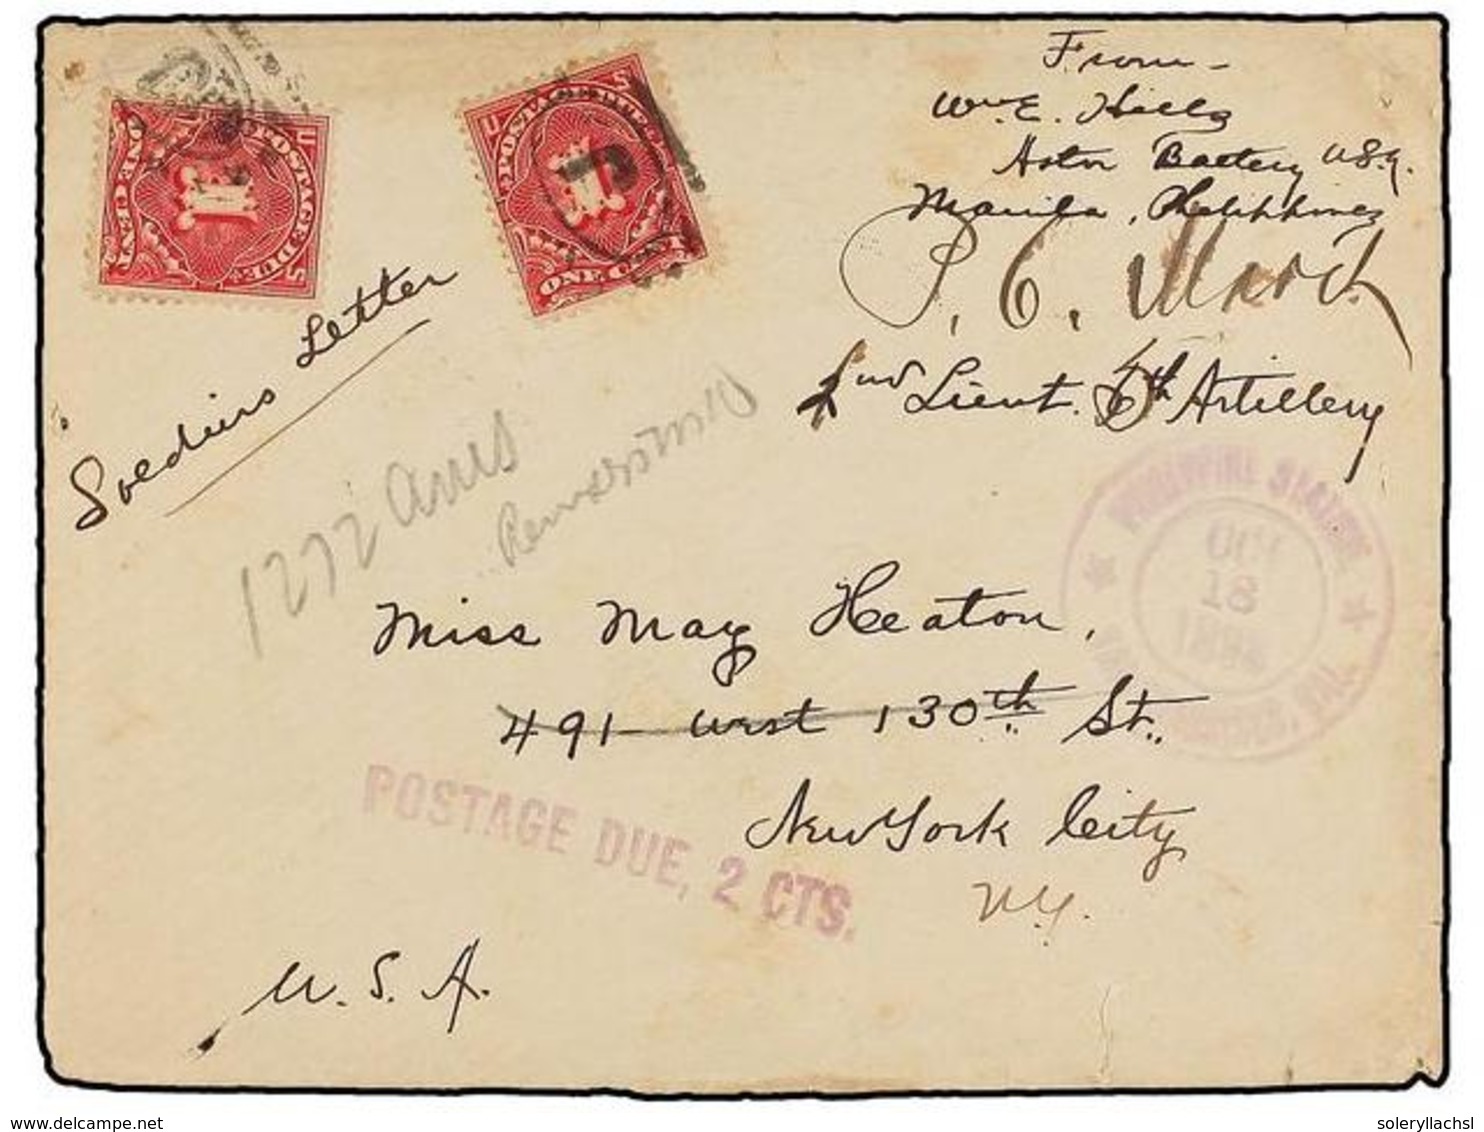 From -
Wm. E. Hills
Astor Battery U.S.A.
Manila, Philippines
P. C. March
2nd Lieut. 6th Artillery
U.S.
POSTAGE DUE
1
ONE CENT
U.S.
POSTAGE DUE
1
ONE CENT
Soldiers Letter
1272 Ams
PHILIPPINE STATION
OCT
18
SAN FRANCISCO, CAL.
Miss May Heaton,
491 West 130th St.
New York City
N.Y.
POSTAGE DUE, 2 CTS.
U. S. A.
soleryllachsl